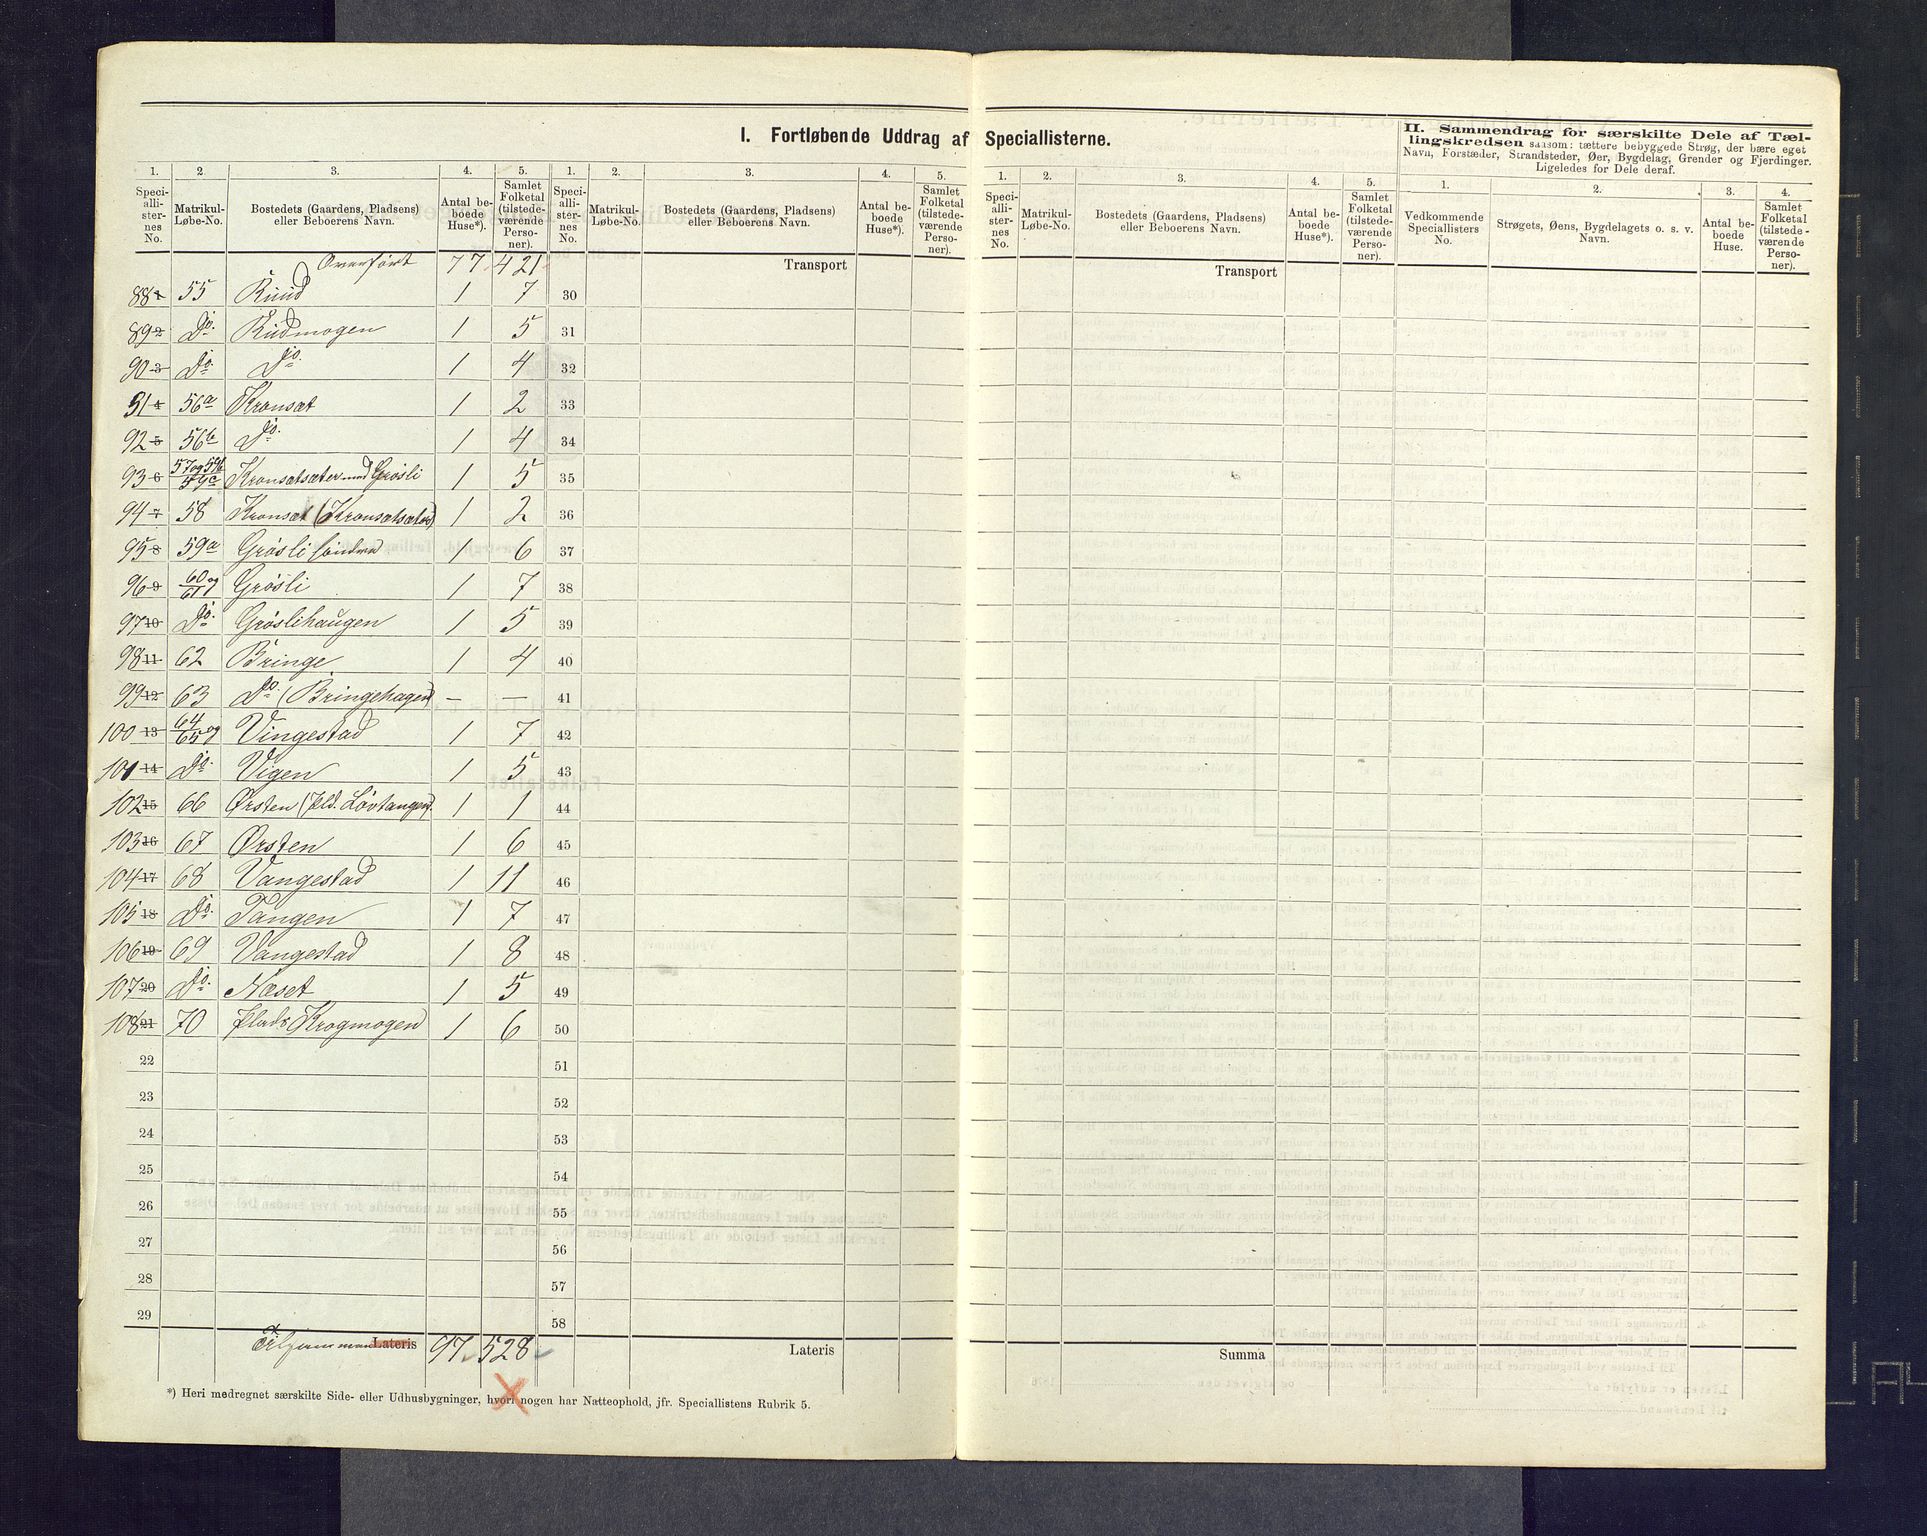 I. Fortløbende Uddrag af Speciallisterne.
II. Sammendrag for særskilte Dele af Tæl-
lingskredsen saasom: tættere bebyggede Strøg, der bære eget
Navn, Forstæder, Strandsteder, Øer, Bygdelag, Grender og Fjerdinger.
Ligeledes for Dele deraf.
1. 2 3. 4. 5. 1. 2. 3. 4. 5. 1. 2. 3. 4. 5. 1. 2. 3. 4.
Speci-alli-ster-nes No. Matrikul-Løbe-No. Bostedets (Gaardens, Pladsens) eller Beboerens Navn. Antal be-boede Huse*). Samlet Folketal (tilstede-værende Perso-ner).
Speci-alli-ster-nes No. Matrikul-Løbe-No. Bostedets (Gaardens, Pladsens) eller Beboerens Navn. Antal be-boede Huse*). Samlet Folketal (tilstede-værende Perso-ner).
Speci-alli-ster-nes No. Matrikul-Løbe-No. Bostedets (Gaardens, Pladsens) eller Beboerens Navn. Antal be-boede Huse*). Samlet Folketal (tilstede-værende Perso-ner).
Vedkommende Speciallisters No. Strøgets, Øens, Bygdelagets o. s. v. Navn. Antal be-boede Huse. Samlet Folketal (tilstede-værende Perso-ner).
Overført 77 421 Transport Transport
88 1 55 Ruud 1 7 30
89 2 Do. Rudmogen 1 5 31
90 3 Do. Do. 1 4 32
91 4 56a Kronsæt 1 2 33
92 5 56b Do. 1 4 34
93 6 57 og 59b 59c Kronsætsæter med Grøsli 1 5 35
94 7 58 Kronsæt (Kronsætsæter) 1 2 36
95 8 59a Grøsli søndre 1 6 37
96 9 60 og 61 Grøsli 1 7 38
97 10 Do. Grøslihaugen 1 5 39
98 11 62 Bringe 1 4 40
99 12 63 Do. (Bringehagen) — — 41
100 13 64 og 65 Vingestad 1 7 42
101 14 Do. Vigen 1 5 43
102 15 66 Ørsten (pld. Løvtangen) 1 1 44
103 16 67 Ørsten 1 6 45
104 17 68 Vangestad 1 11 46
105 18 Do. Tangen 1 7 47
106 19 69 Vangestad 1 8 48
107 20 Do. Næset 1 5 49
108 21 70 plads Krogmogen 1 6 50
22 51
23 52
24 53
25 54
26 55
27 56
28 57
29 58
Tilsammen Lateris 97 528 Lateris Summa
*) Heri medregnet særskilte Side- eller Udhusbygninger, hvori nogen har Natteophold, jfr. Speciallistens Rubrik 5.